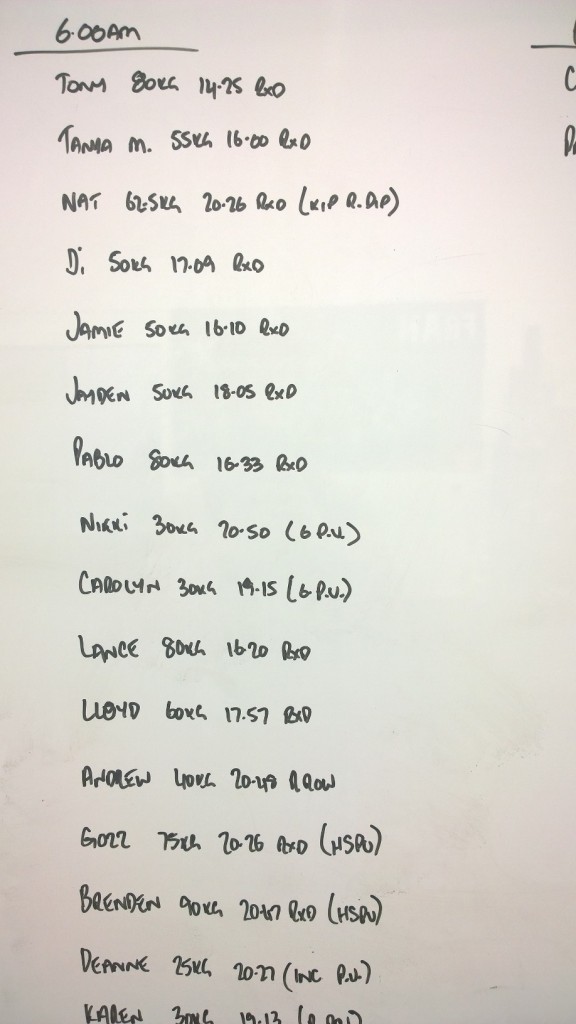 6.00AM
TONY 80KG 14.25 RXD
TANYA M. 55KG 16.00 RXD
NAT 62.5KG 20.26 RXD (KIP R.DIP)
Di 50KG 17.09 RXD
JAMIE 50KG 16.10 RXD
JAYDEN 50KG 18.05 RXD
PABLO 80KG 16.33 RXD
NIKKi 30KG 20.50 (G P.U)
CAROLYN 30KG 19.15 (G P.U.)
LANCE 80KG 16.20 RXD
LLOYD 60KG 17.57 RXD
ANDREW 40KG 20.48 R ROW
GOZZ 75KG 20.26 RXD (HSPU)
BRENDEN 90KG RXD (HSPU)
DEANNE 25KG 20.27 (INC P.U.)
KAREN 30KG 19.13